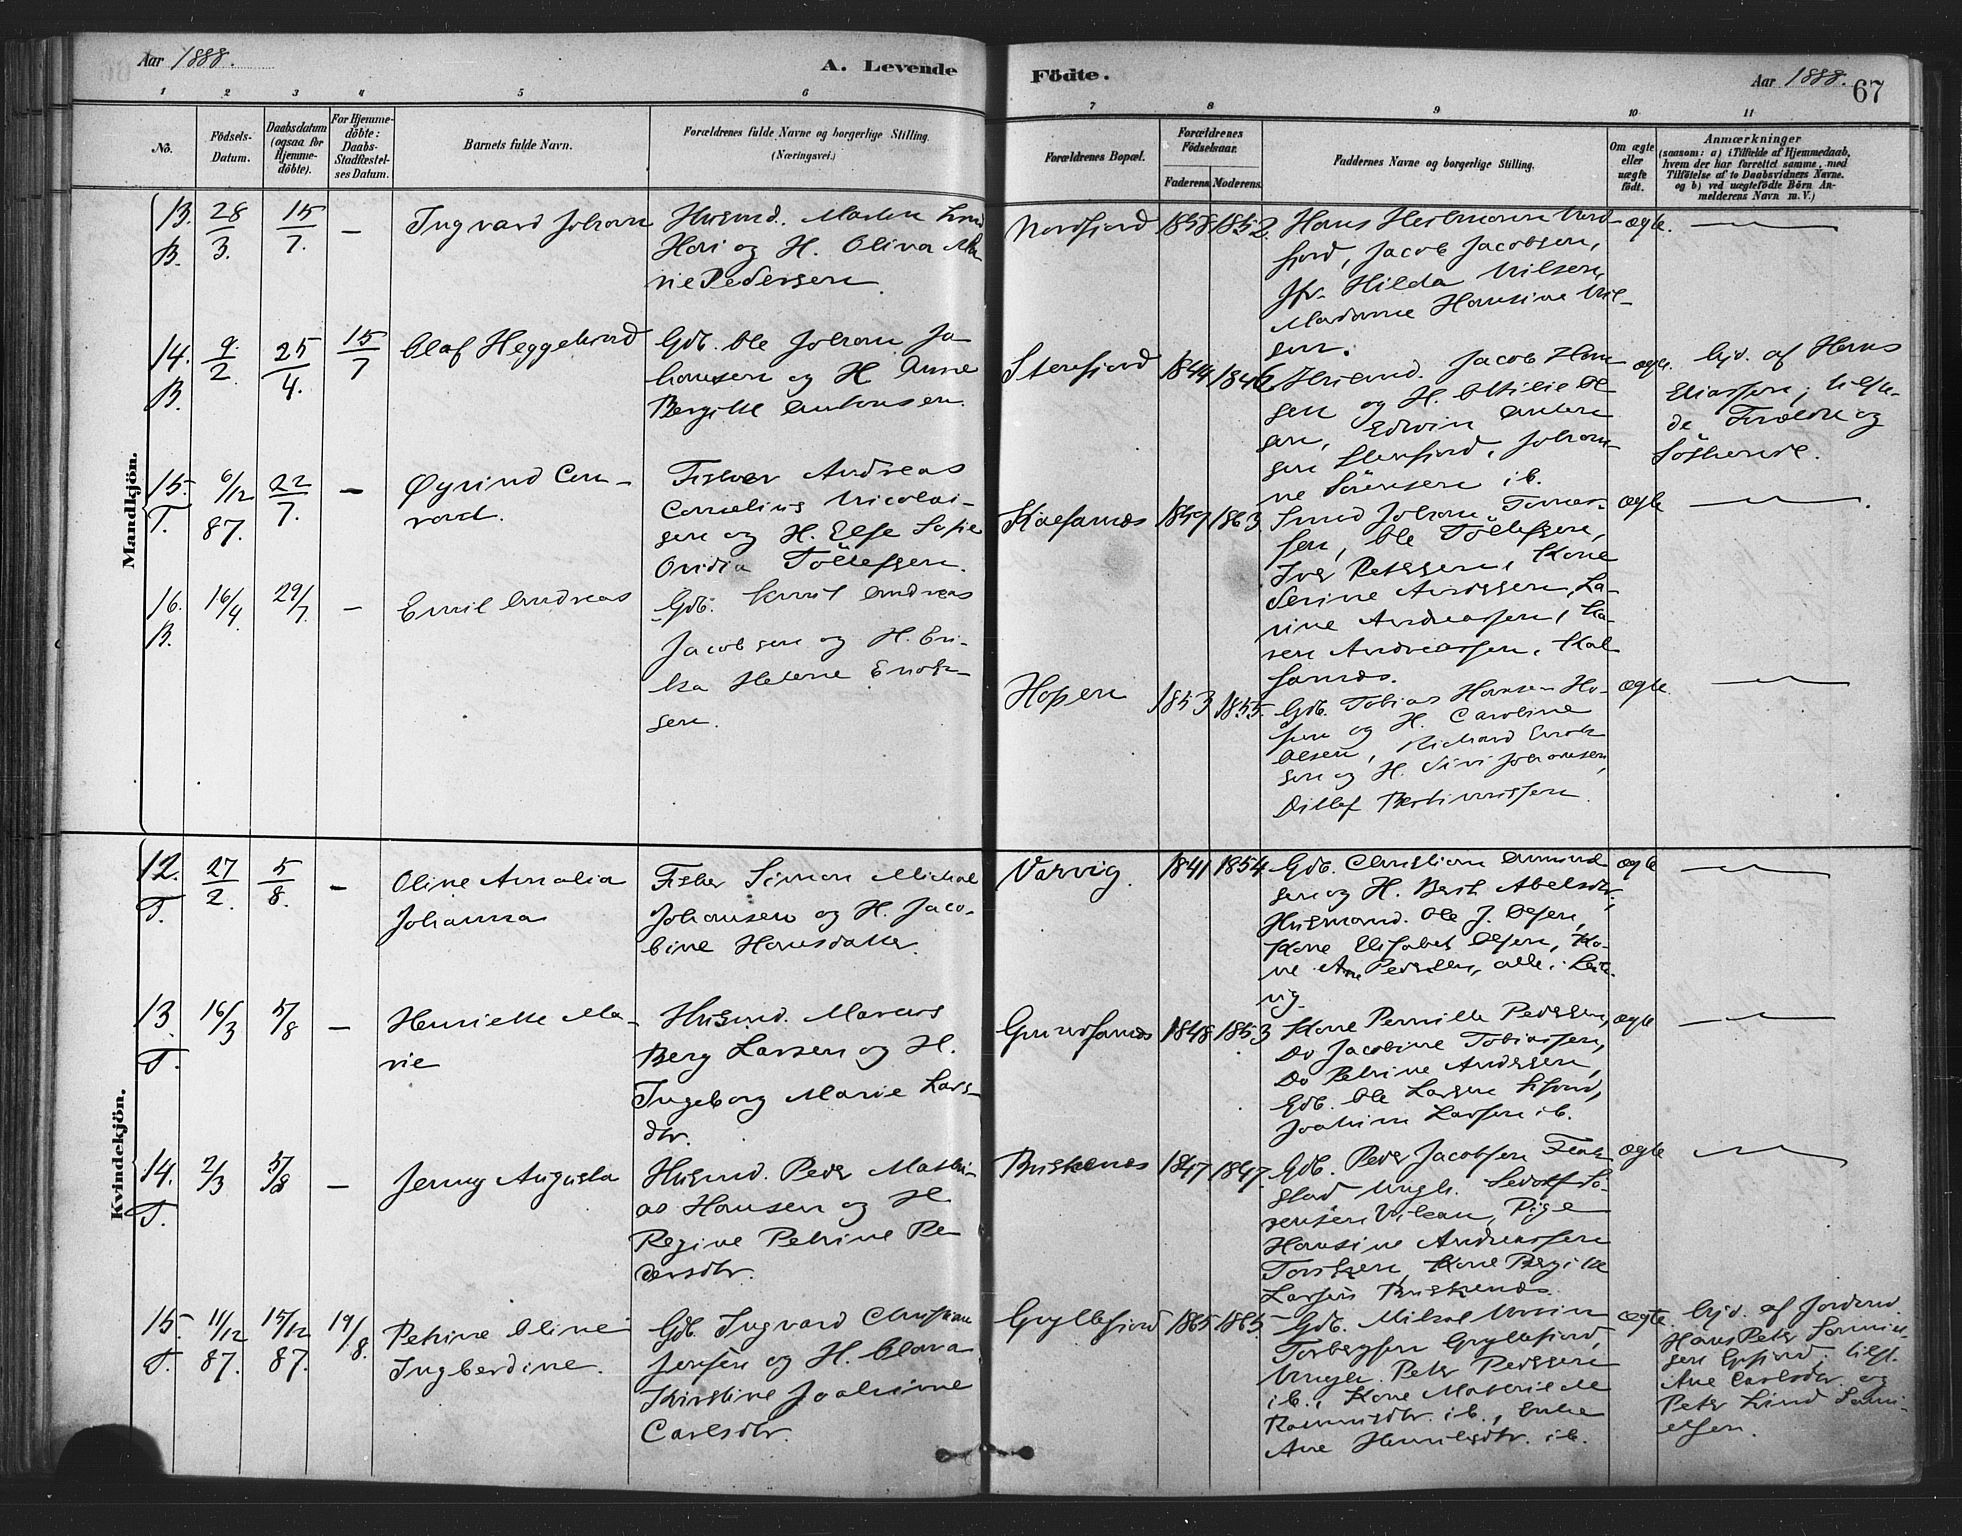 Aar 1888.
A. Levende
Födte.
Aar 1888.
67
1 2 3 4 5 6
7 8 9 10 11
No.
Födsels-
Datum.
Daabsdatum
(ogsaa for
Hjemme-
döbte).
For Hjemme-
döbte:
Daabs-
Stadfæstel-
ses Datum.
Barnets fulde Navn.
Forældrenes fulde Navne og borgerlige Stilling.
(Næringsvei.)
Forældrenes Bopæl.
Forældrenes
Födselsaar.
Faderens. Moderens.
Faddernes Navne og borgerlige Stilling.
Om ægte
eller
uægte
födt.
Anmærkninger
(saasom: a) i Tilfælde af Hjemmedaab,
hvem der har forrettet samme, med
Tilföielse af to Daabsvidners Navne.
og b) ved uægtefödte Börn An-
melderens Navn m. V.)
Mandkjön.
13.
B.
28/3.
15/7.
—
Ingvard Johan
Husmd. Marten
Hari og H. Oliva Ma
rie Pedersen
Nordfjord
1858
1852.
Hans Heitmann Nord-
fjord, Jacob Jacobsen,
Jfr. Hilda Nilsen,
Madame Hansine Nil-
sen.
ægte.
—
14.
B.
9/2.
25/4.
15/7
Olaf Heggelund
Gdb. Ole Johan Jo
hansen og H. Anne
Bergitte Antonsen.
Stenfjord
1844
1846
Husmd. Jacob Han
sen og H. Ottilie Ol
sen, Edvin Anton
sen, Stenfjord, Johan-
ne Sörensen ib.
ægte.
Hjd. af Hans
Eliassen, tilste-
de Forældre og
Söskende.
15.
T.
6/12
87.
22/7.
—
Øyvind Con-
rad.
Fisker Andreas
Cornelius Nicolai-
sen og H. Else Sofie
Ovidia Töllefsen.
Kaefanæs
1859
1863
Smed Johan Tomas-
sen, Ole Töllefsen,
Iver Petersen, Kone
Serine Andersen, La-
rine Andreassen, Ka-
ren Andreassen, Kal
fanæs.
ægte
—
16.
B.
16/4
29/7.
—
Emil Andreas
Gdb. Emil Andreas
Jacobsen og H. Eri-
ka Helene Enok-
sen.
Hopen
1853
1855.
Gdb. Tobias Hansen Ho-
pen og H. Caroline
Olsen, Richard Enok
sen og H. Sivi Johansen,
Ditlef Bertinussen.
ægte.
—
Kvindekjön.
12.
T.
27/2.
5/8.
—
Oline Amalia
Johanna
Fisker Simon Mickal
Johansen og H. Jaco-
bine Hansdatter.
Varvig.
1841
1854
Gdb. Christian Amund
sen og H. Berit Abelsdtr,
Husmand. Ole J. Olsen,
Kone Elisabet Olsen, Ko-
ne Ane Pedersen, alle i
vig.
ægte
—
13.
T.
16/3
5/8
—
Henriette Ma-
rie
Husmd. Marcus
Berg Larsen og H.
Ingeborg Marie Lars-
dtr.
Grundfarnæs
1848
1853
Kone Pernille Pedersen,
Do Jacobine Tobiassen,
Do Petrine Andersen,
Gdb. Ole Larsen
Joakim Larsen ib.
ægte
—
14.
T.
2/3
5/8
—
Jenny Augusta
Husmd. Peder Mathi-
as Hansen og H
Regine Petrine Pe
dersdtr.
Buskenæs
1847
1847.
Gdb. Peder Jacobsen Flak
stad Ungk. Sedolf Sö-
rensen Vikan, Pige
Hansine Andreassen
Torsken, Kone Bergitte
Larsen Buskenæs.
ægte
—
15.
T.
11/12
87.
15/12
87.
19/8.
Petrine Oline
Ingberdine.
Gdb. Ingvard Christian
Jensen og H. Clara
Kirstine Joakimine
Carlsdtr.
Gryllefjord
1865
1865.
Gdb. Mikal Martin
Torbergsen Gryllefjord,
Ungk. Peter Pedersen
ib., Kone Mathilde
Rasmusdtr. ib., Enke
Ane Henriksdtr. ib.
ægte.
Hjd. af Jordmd.
Hans Peter
sen tilst.
Ane Carlsdtr. og
Peter Lind Sami-
elsen.